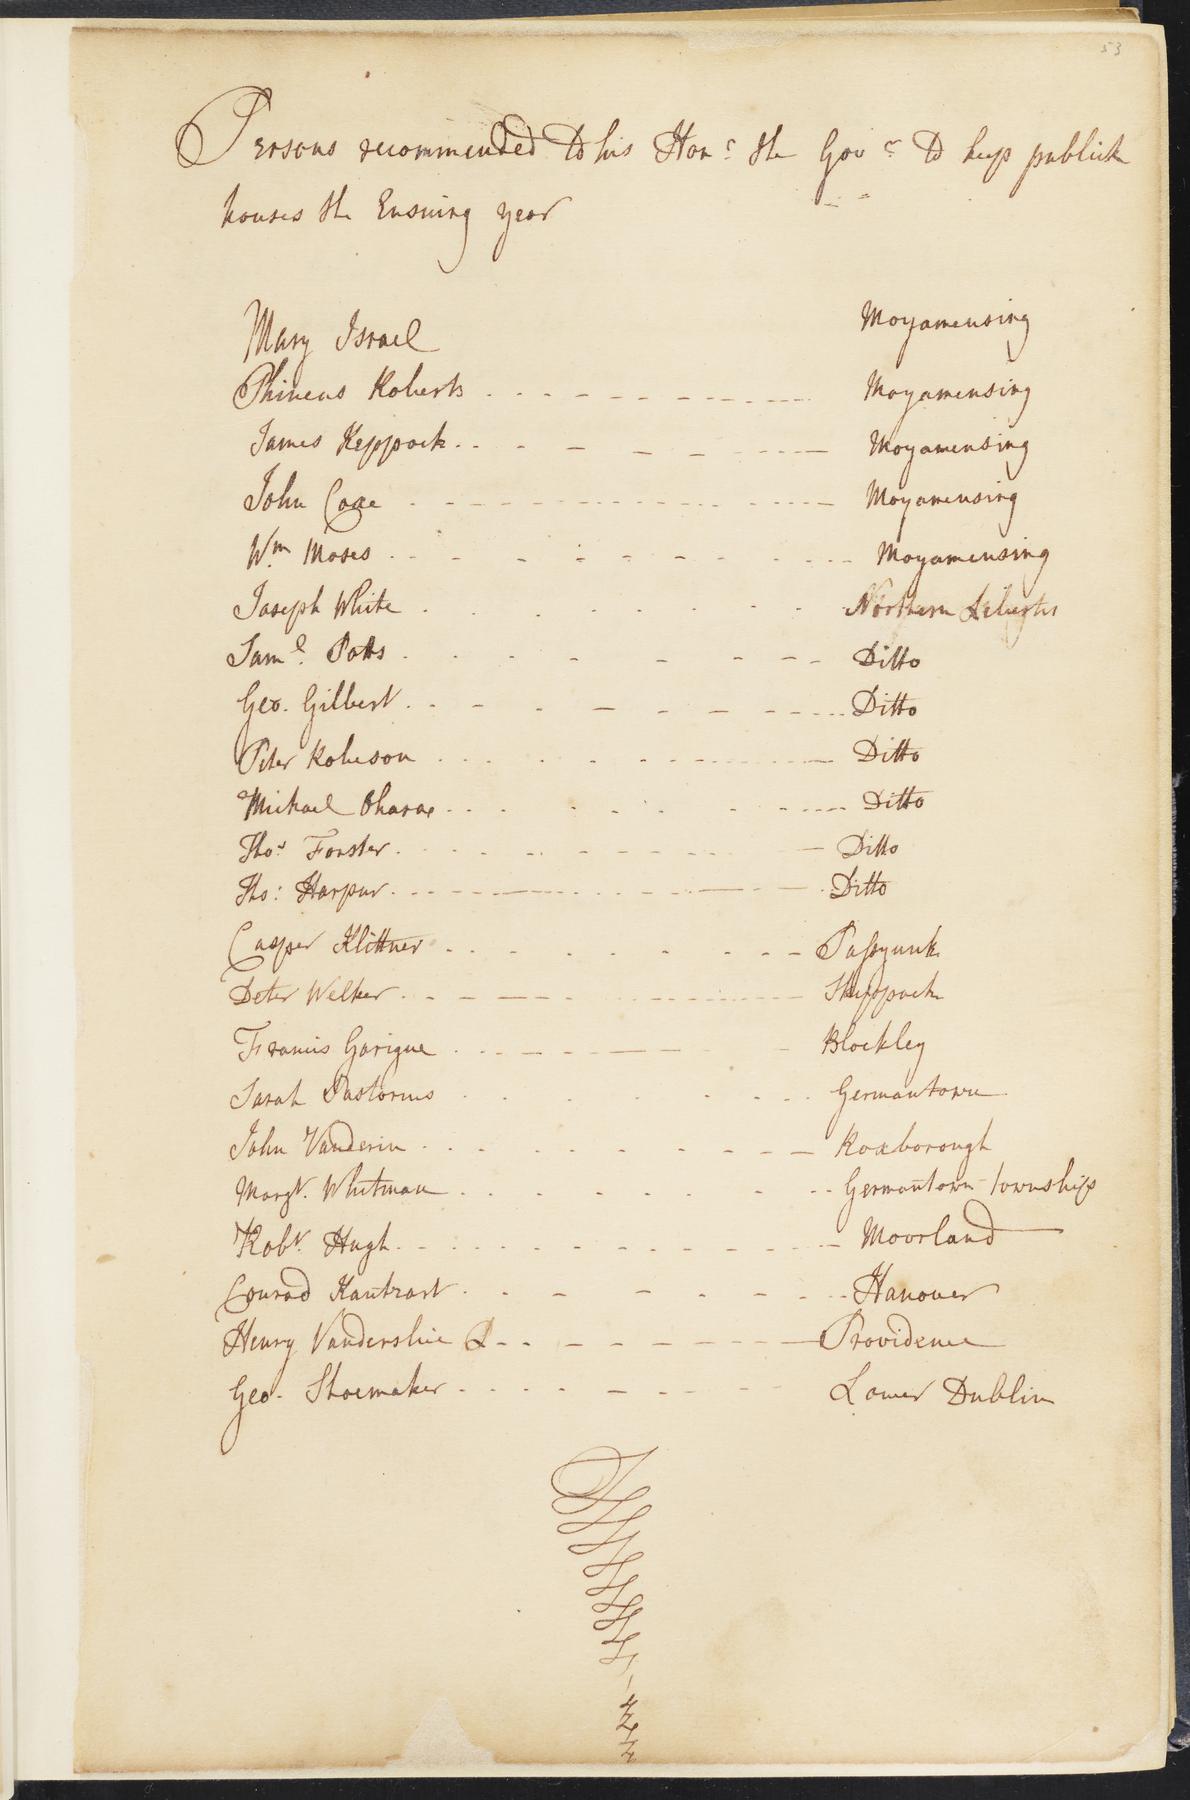 53
Persons recommended to his Honr. the Govr. to keep publick
houses the Ensuing year
Mary Israel Moyamensing
Phineas Roberts Moyamensing
James Keppock Moyamensing
John Coxe Moyamensing
Wm Moses Moyamensing
Joseph White Northern Liberties
Saml. Potts Ditto
Geo. Gilbert Ditto
Peter Robeson Ditto
Michael Oharae Ditto
Thos. Forster Ditto
Tho: Harpur Ditto
Casper Klittner Passyunk
Peter Welker Skippack
Francis Garigue Blockley
Sarah Pastorius Germantown
John Vanderin Roxborough
Margt. Whitman Germantown Township
Robt. Hugh Moorland
Conrad Kantzart Hanover
Henry Vanderslice Providence
Geo. Shoemaker Lower Dublin